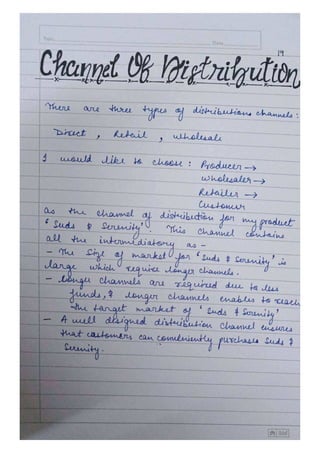 Date
19
Channel Of Distribution
There are three types of distributions channels:
Direct , Retail , wholesale
I would like to choose : Producer →
wholesaler →
Retailer →
Customer
as the channel of distribution for my product
'Suds & Serenity'. This channel contains
all the intermediatory as -
- The Size of market for 'Suds & Serenity' is
large which require longer channels.
- Longer channels are required due to less
funds, & longer channels enables to reach
the target market of 'Suds & Serenity'
- A well designed distribution channel ensures
that customers can conveniently purchases Suds &
Serenity.